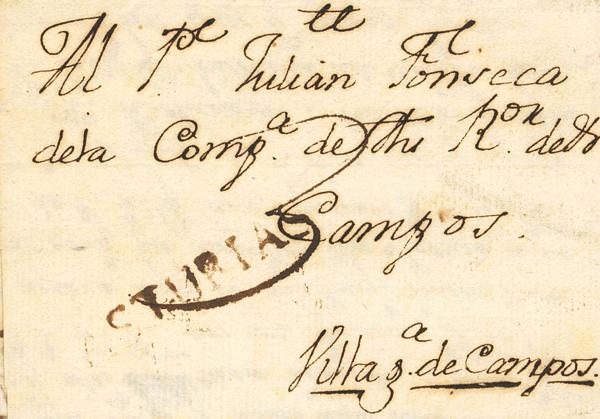 Al P^e Julian Fon^lseca
dela Comp.^a de Jhs R^or. de
Campos.
STURIAS
Villag.^a de Campos.